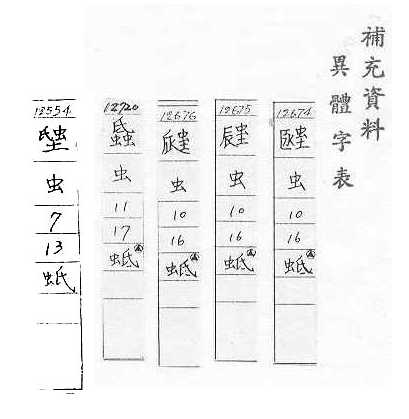 補充資料
異體字表
12674
虫
10
16
蚳
12675
虫
10
16
蚳
12676
虫
10
16
蚳
12720
虫
11
17
蚳
12554
虫
7
13
蚳